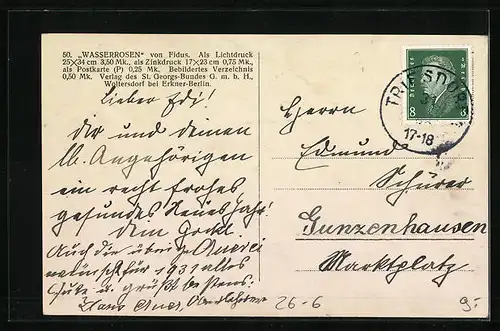 50. „WASSERROSEN" von Fidus. Als Lichtdruck
25×34 cm 3,50 Mk., als Zinkdruck 17×23 cm 0,75 Mk.,
als Postkarte (P) 0,25 Mk. Bebildertes Verzeichnis
0,50 Mk. Verlag des St. Georgs-Bundes G. m. b. H.,
Woltersdorf bei Erkner-Berlin.
Lieber Edi!
Dir und deinen
lb. Angehörigen
ein recht frohes
gesundes Neues Jahr!
Auch die
für 1931 alles
Gute u. grüßt bestens
Hans
DEUTSCHES REICH
8 8
TRIESDORF
31
17-18
Herrn
Edmund
Schürer
Gunzenhausen
Marktplatz
26-6
9.-